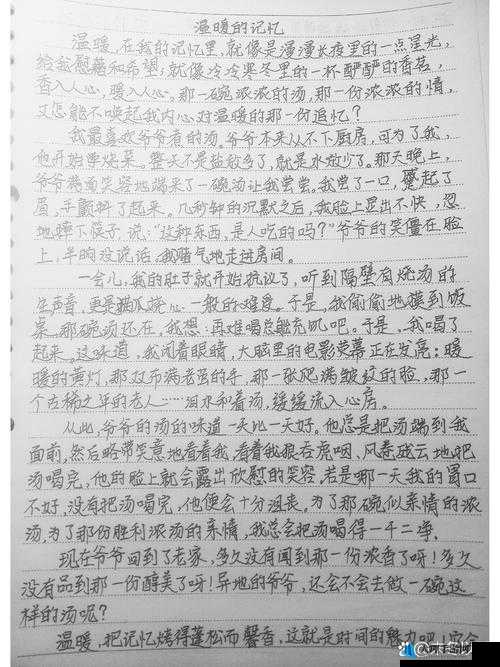 温暖的记忆
温暖,在我的记忆里,就像是漫漫长夜里的一点星光,
给我慰藉和希望;就像冷冷寒冬里的一杯酽酽的香茗,
香入人心,暖入人心。那一碗浓浓的汤,那一份浓浓的情,
又怎能不唤起我内心对温暖的那一份追忆?
我最喜欢爷爷煮的汤。爷爷本来从不下厨房,可为了我,
他开始学烧菜。整天不是盐放多了,就是水放少了。那天晚上,
爷爷满面笑容地端来了一碗汤让我尝尝,我尝了一口,蹙起了
眉,手颤抖了起来。几秒钟的沉默之后,我脸上显出不快,忽
地摔下筷子,说:“这种东西,是人吃的吗?”爷爷的笑僵在脸
上,半晌没说话,我赌气地走进房间。
一会儿,我的肚子就开始抗议了,听到隔壁有烧汤的
声音,更是猫爪挠心一般的难受。于是,我偷偷地摸到饭
桌。那碗汤还在,我想:再难喝总能充饥吧。于是,我喝了
起来。这味道,我闭着眼睛,大脑里的电影荧幕正在发亮:暖
暖的黄灯,那双布满老茧的手,那一张爬满皱纹的脸,那一
个古稀之年的老人……泪水和着汤,缓缓流入心房。
从此,爷爷的汤的味道一天比一天好。他总是把汤端到我
面前,然后略带笑意地看着我,看着我狼吞虎咽、风卷残云地把
汤喝完,他的脸上就会露出欣慰的笑容。若是哪一天我的胃口
不好,没有把汤喝完,他便会十分沮丧。为了那碗似亲情的浓
汤,为了那份胜利浓汤的亲情,我总会把汤喝得一干二净。
现在爷爷回到了老家,多久没有闻到那一份浓香了呀!多久
没有品到那一份醇美了呀!异地的爷爷,还会不会去做一碗这
样的汤呢?
温暖,把记忆烤得蓬松而馨香,这就是时间的魅力吧,它会